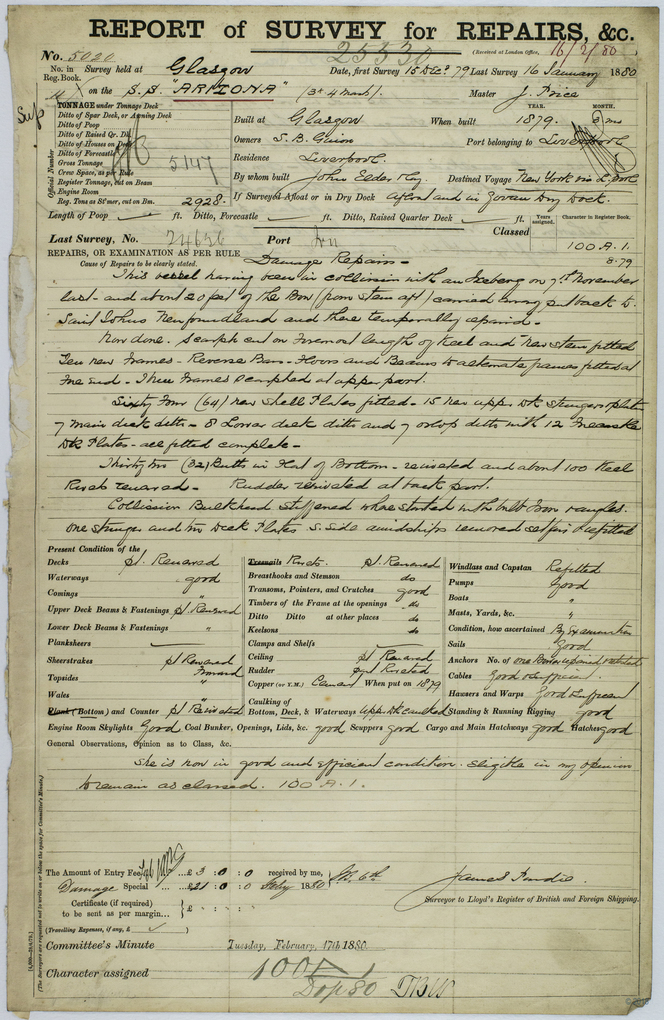 REPORT of SURVEY for REPAIRS, &c.
No. 5020
25530
(Received at London Office, 16/2/80)
No. in Reg. Book. Survey held at Glasgow Date, first Survey 15 Dec. 79 Last Survey 16 January 1880
on the S.S. "ARIZONA" (Str 4 Mast). Master J. Price
Sup
TONNAGE under Tonnage Deck
Ditto of Spar Deck, or Awning Deck
Ditto of Poop
Ditto of Raised Qr. Dk.
Ditto of Houses on Deck
Ditto of Forecastle
Gross Tonnage 5147
Crew Space, as per Rule
Register Tonnage, cut on Beam
Engine Room
Reg. Tons as St'mer, cut on Bm. 2928
Official Number
Built at Glasgow When built YEAR. 1879. MONTH. 3 ms
Owners S. B. Guion Port belonging to Liverpool
Residence Liverpool.
By whom built John Elder & Co. Destined Voyage New York via L.pool
If Surveyed Afloat or in Dry Dock Afloat and in Govan Dry Dock.
Length of Poop ft. Ditto, Forecastle ft. Ditto, Raised Quarter Deck ft. Years assigned. Character in Register Book.
Last Survey, No. 24626 Port Classed 100 A.1.
8.79
REPAIRS, OR EXAMINATION AS PER RULE
Cause of Repairs to be clearly stated. Damage Repairs -
This vessel having been in collision with an Iceberg on 7th November
last - and about 20 feet of the Bow (from stem aft) carried away put back to
Saint Johns Newfoundland and there temporally repaired -
Now done. Scarph cut on Foremost length of Keel and New Stem fitted
Ten new Frames - Reverse Bars - Floors and Beams to alternate frames fitted at
Fore end - Three Frames scarphed at upper part.
Sixty Four (64) new Shell Plates fitted - 15 new upper Dk Stringer plates
7 Main deck ditto - 8 Lower deck ditto and 7 orlop ditto with 12 Forecastle
Dk Plates - all fitted complete -
Thirty two (32) Butts in Flat of Bottom - rerivetted and about 100 Keel
Rivets renewed - Rudder rerivetted at back part.
Collission Bulkhead stiffened where started with bulb Iron & angles.
One stringer and two Deck Plates S. Side amidships removed set fair & refitted
Present Condition of the
Decks pt. Renewed
Waterways good
Comings "
Upper Deck Beams & Fastenings pt. Renewed
Lower Deck Beams & Fastenings "
Planksheers
Sheerstrakes pt Renewed
Topsides Forward
Wales "
Plank (Bottom) and Counter pt Rerivetted
Treenails Rivets. pt. Renewed
Breasthooks and Stemson do
Transoms, Pointers, and Crutches good
Timbers of the Frame at the openings do
Ditto Ditto at other places do
Keelsons do
Clamps and Shelfs
Ceiling pt Renewed
Rudder pt Riveted
Copper (or Y.M.) Cement When put on 1879
Caulking of Bottom, Deck, & Waterways Upper Dk caulked
Windlass and Capstan Refitted
Pumps Good
Boats "
Masts, Yards, &c. "
Condition, how ascertained By Examination
Sails Good
Anchors No. of one Bower repaired & retested
Cables Good & sufficient.
Hawsers and Warps Good & sufficient
Standing & Running Rigging good
Engine Room Skylights Good Coal Bunker, Openings, Lids, &c. good Scuppers good Cargo and Main Hatchways good Hatches good
General Observations, Opinion as to Class, &c.
She is now in good and efficient condition. eligible in my opinion
to remain as classed. 100 A.1.
The Amount of Entry Fee ... £3 : 0 : 0 received by me,
Damage Special ... £21 : 0 : 0 Feby 1880
Certificate (if required) to be sent as per margin...
(Travelling Expenses, if any, £ )
Surveyor to Lloyd's Register of British and Foreign Shipping.
Committee's Minute Tuesday, February, 17th 1880.
Character assigned 100 A 1
(The Surveyors are requested not to write on or below the space for Committee's Minute.)